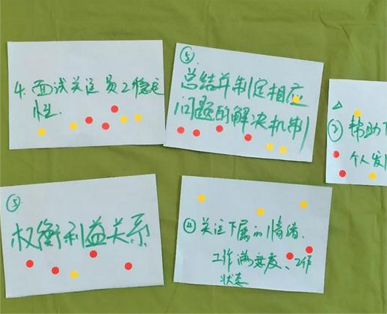 4. 面试关注员工稳定
性.
⑤
总结并制定相应
问题的解决机制
△
② 帮助下
个人发
③
权衡利益关系
④ 关注下属的情绪.
工作满意度、工作
状态